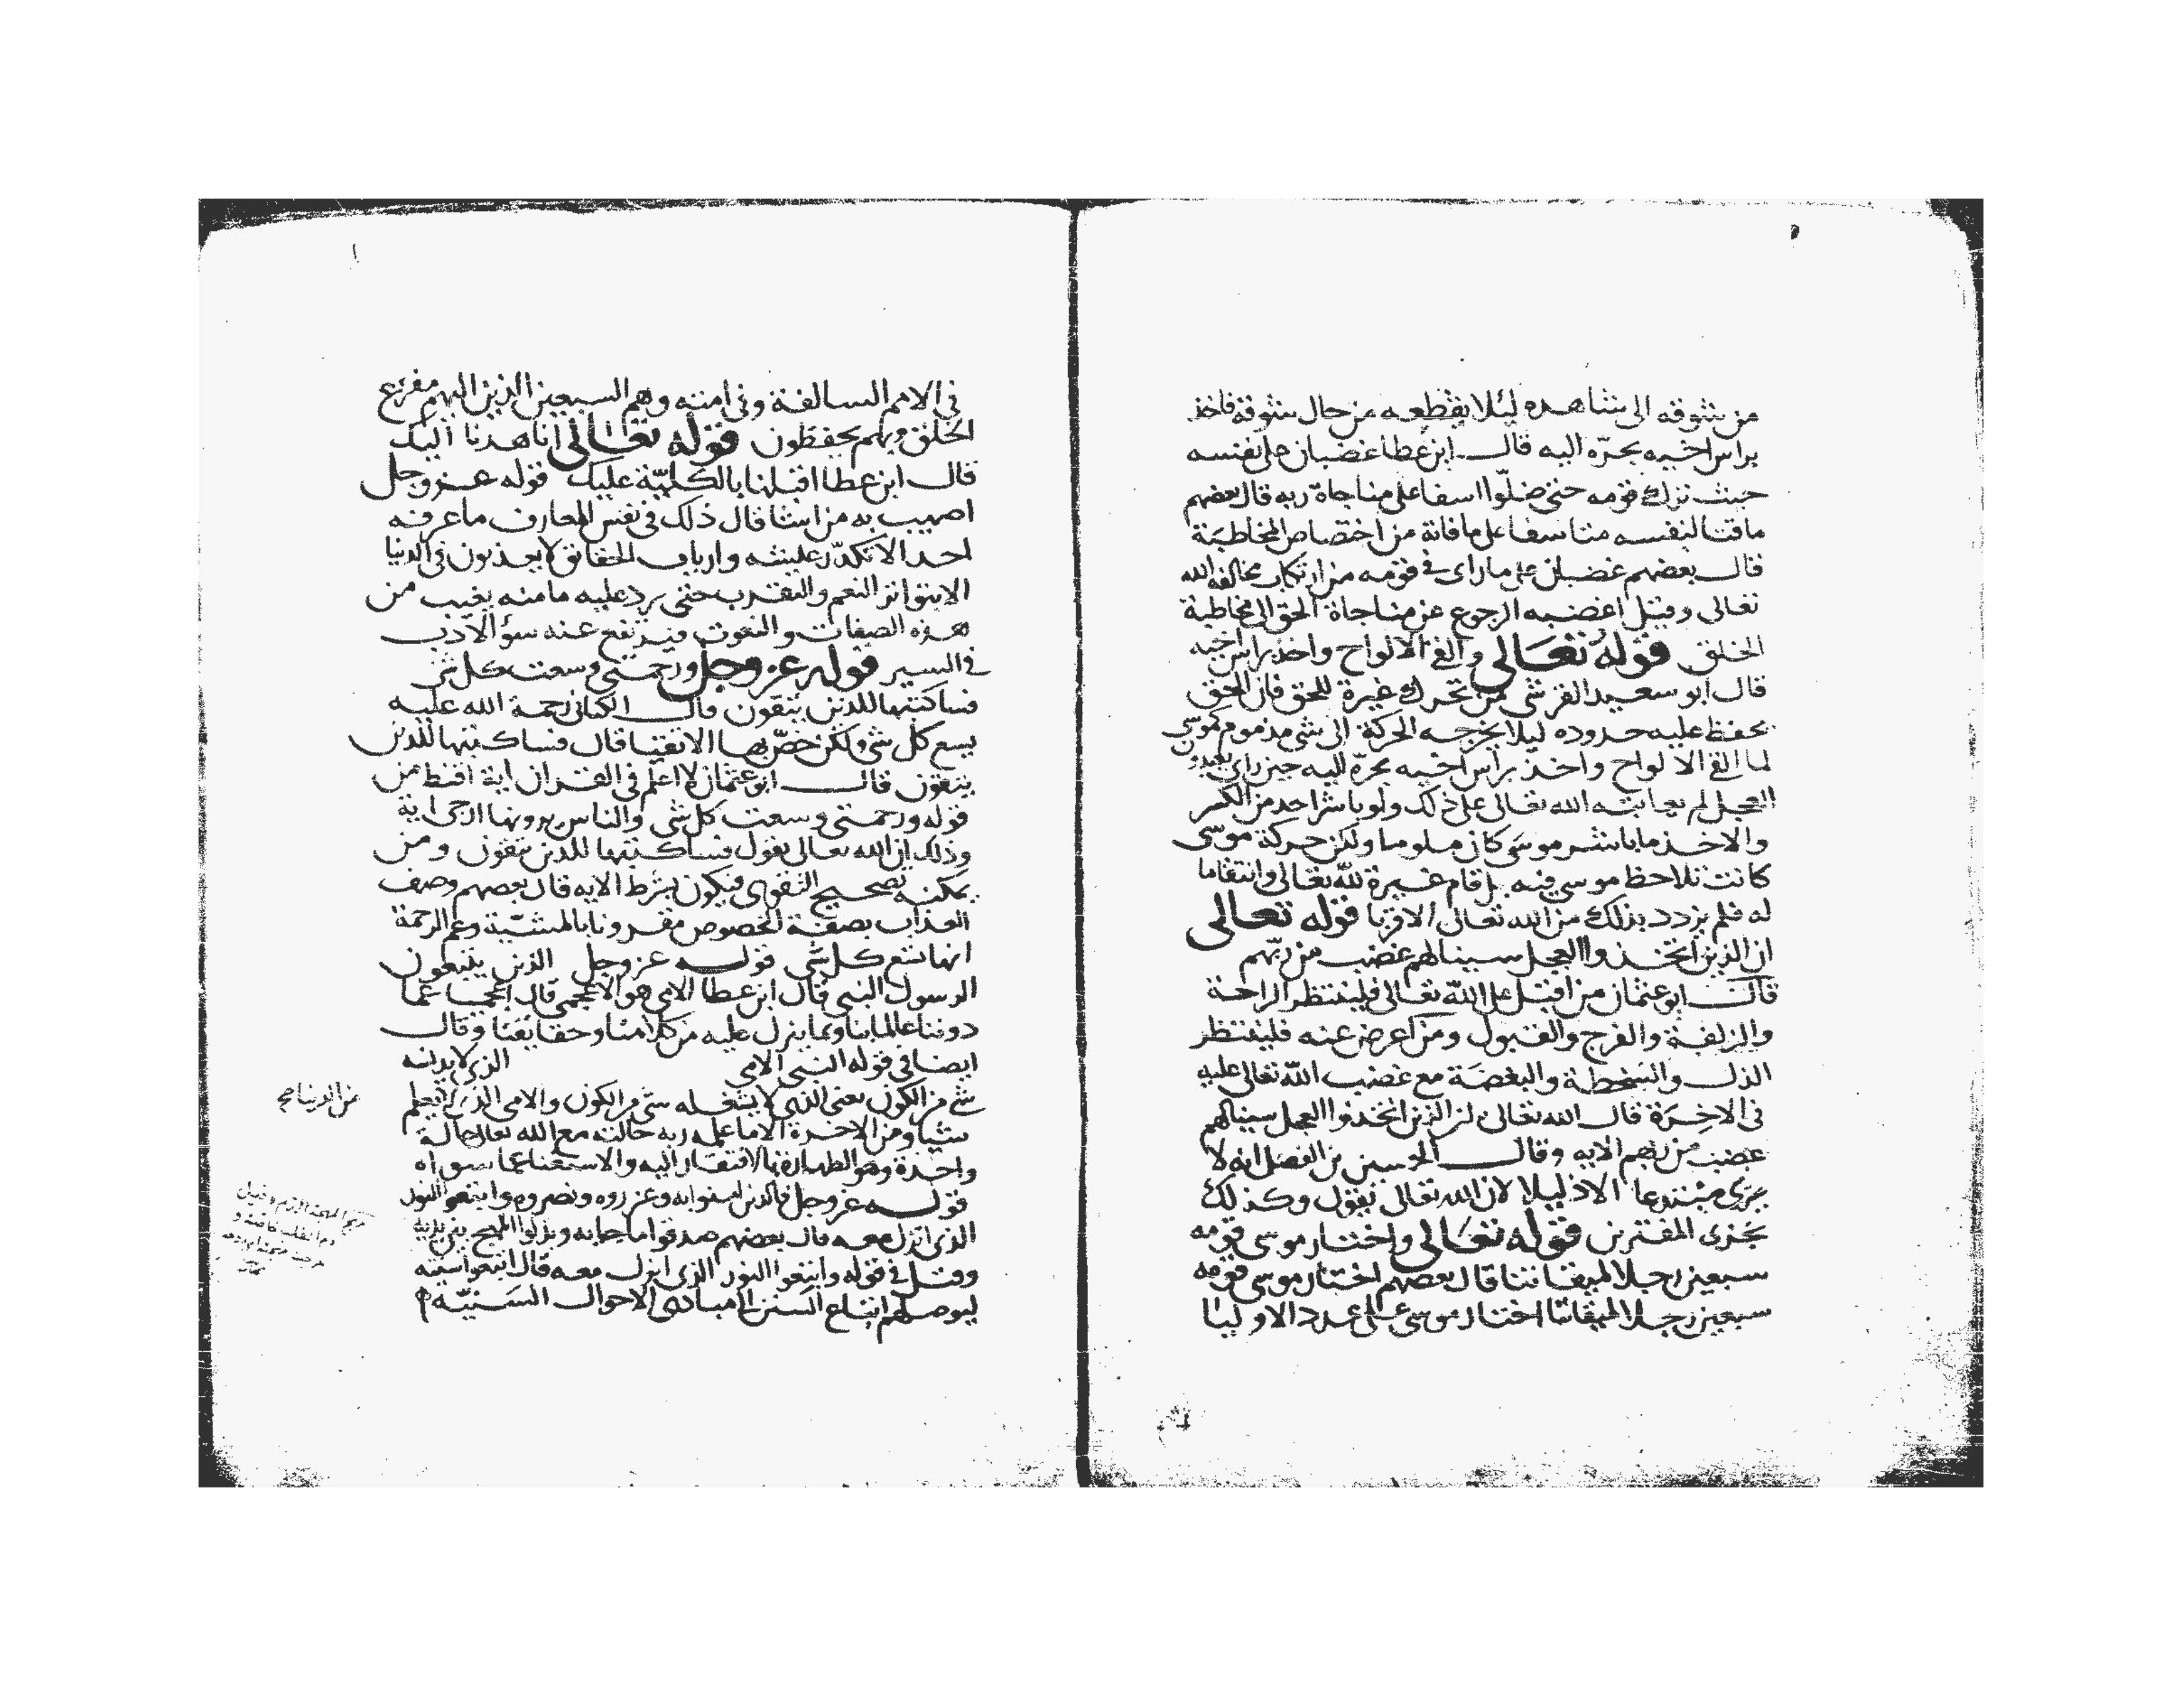 من شوقه الى مشاهده ليلا يقطعه من حال شوقه فاخذ
براس اخيه يجرّه اليه قال ابن عطا غضبان على نفسه
حيث ترك قومه حتى ضلّوا اسفا على مناجاة ربه قال بعضهم
ماقتا لنفسه متاسفا على ما فاته من اختصاص المخاطبة
قال بعضهم غضبان على ما راى في قومه من ارتكاب مخالفة الله
تعالى وقيل اغضبه الرجوع عن مناجاة الحق الى مخاطبة
الخلق قوله تعالى والقى الالواح واخذ براس اخيه
قال ابو سعيد القرشى من تحرك غيرة للحق فان الحق
يحفظ عليه حدوده ليلا يخرجه الحركة الى شى مذموم كموسى
لما القى الالواح واخذ براس اخيه يجرّه اليه حين راى يعبدون
العجل لم يعاتبه الله تعالى على ذلك ولو باشر احد من الكسر
والاخذ ما باشر موسى كان ملوما ولكن حركة موسى
كانت تلاحظ موسى فيه بل قام غيرة لله تعالى وانتقاما
له فلم يزدد بذلك من الله تعالى الا قربا قوله تعالى
ان الذين اتخذوا العجل سينالهم غضب من ربّهم
قال ابو عثمان من اقبل على الله تعالى فلينتظر الراحة
والزلفة والفرج والقبول ومن اعرض عنه فلينتظر
الذل والسخطة والبغضة مع غضب الله تعالى عليه
فى الاخرة قال الله تعالى ان الذين اتخذوا العجل سينالهم
غضب من ربهم الايه وقال الحسين بن الفضل انه لا
يرى مبتدعا الا ذليلا لان الله تعالى يقول وكذلك
نجزى المفترين قوله تعالى واختار موسى قومه
سبعين رجلا لميقاتنا قال بعضهم اختار موسى قومه
سبعين رجلا لميقاتنا اختار موسى على عدد الاوليا
فى الامم السالفة وفى امته وهم السبعين الذين اليهم مفزع
الخلق وبهم يحفظون قوله تعالى انا هدنا اليك
قال ابن عطا اقبلنا بالكليّة عليك قوله عز وجل
اصيب به من اشا قال ذلك فى نفس المعارف ما عرفه
احد الا تكدّر عليشه وارباب الحقائق لا يعذبون فى الدنيا
الا بتواتر النعم والتقرب حتى يرد عليه ما منه يغيب من
هذه الصفات والنعوت فيرتفع عنه سؤ الادب
فى السير قوله عز وجل ورحمتى وسعت كل شى
فساكتبها للذين يتقون قال الكتانى رحمة الله عليه
يسع كل شى ولكن خصّ بها الاتقيا قال فساكتبها للذين
يتقون قال ابو عثمان لا اعلم فى القران اية اقنط من
قوله ورحمتى وسعت كل شى والناس يرونها ارجى اية
وذلك ان الله تعالى يقول فساكتبها للذين يتقون ومن
يمكنه تصحيح التقوى فيكون بشرط الايه قال بعضهم وصف
العذاب بصفة الخصوص مقرونا بالمشيّة وعم الرحمة
انها تسع كل شى قوله عز وجل الذين يتبعون
الرسول النبى قال ابن عطا الامى هو الاعجمى قال اعجميا عما
دوننا عالما بنا وبما ينزل عليه من كلامنا وحقايقنا وقال
ايضا فى قوله النبى الامى الذى لا يدنسه
شى من الكون يعنى الذى لا يشغله شى من الكون والامى الذى لا يعلم
شيا ومن الاخرة الا ما علمه ربه حالته مع الله تعالى حالة
واحدة وهو الطهارة بالافتقار اليه والاستغنا عما سواه
قوله عز وجل فالذين امنوا به وعزروه ونصروه واتبعوا النور
الذى انزل معه قال بعضهم صدقوا ما جا به وبذلوا المهج بين يديه
وقيل فى قوله واتبعوا النور الذى انزل معه قال اتبعوا سنته
ليوصلهم اتباع السنن الى مبادى الاحوال السنيّة
من الدنيا صح